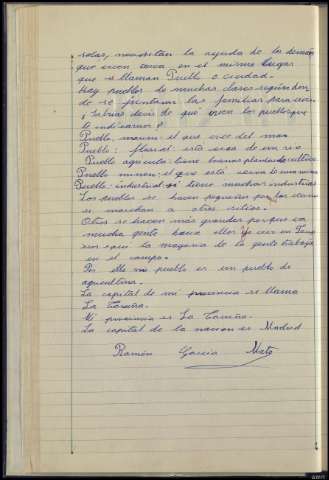 solas, necesitan la ayuda de la demás
que viven cerca en el mismo lugar
que se llaman Pueblo o ciudad.
Hay pueblos de muchas clases según don
de se juntaran las familias para vivir
¿Sabrías decir de qué viven los pueblos que
te indicamos?
Pueblo marin: el que vive del mar
Pueblo: fluvial: está cerca de un rio
Pueblo agricola: tiene buenas plantas de cultivo
Pueblo minero: el que está cerca de una mina
Pueblo: industrial: si tiene muchas industrias
Los pueblos se hacen pequeños por
se marchan a otros sitios.
Otros se hacen más grandes porque va
mucha gente hacia ellos
aquí la mayoria de la gente trabaja
en el campo.
Por ello mi pueblo es un pueblo de
agricultura.
La capital de mi provincia se llama
La Coruña.
Mi provincia es La Coruña.
La capital de la nacion es Madrid
Ramón García Mato